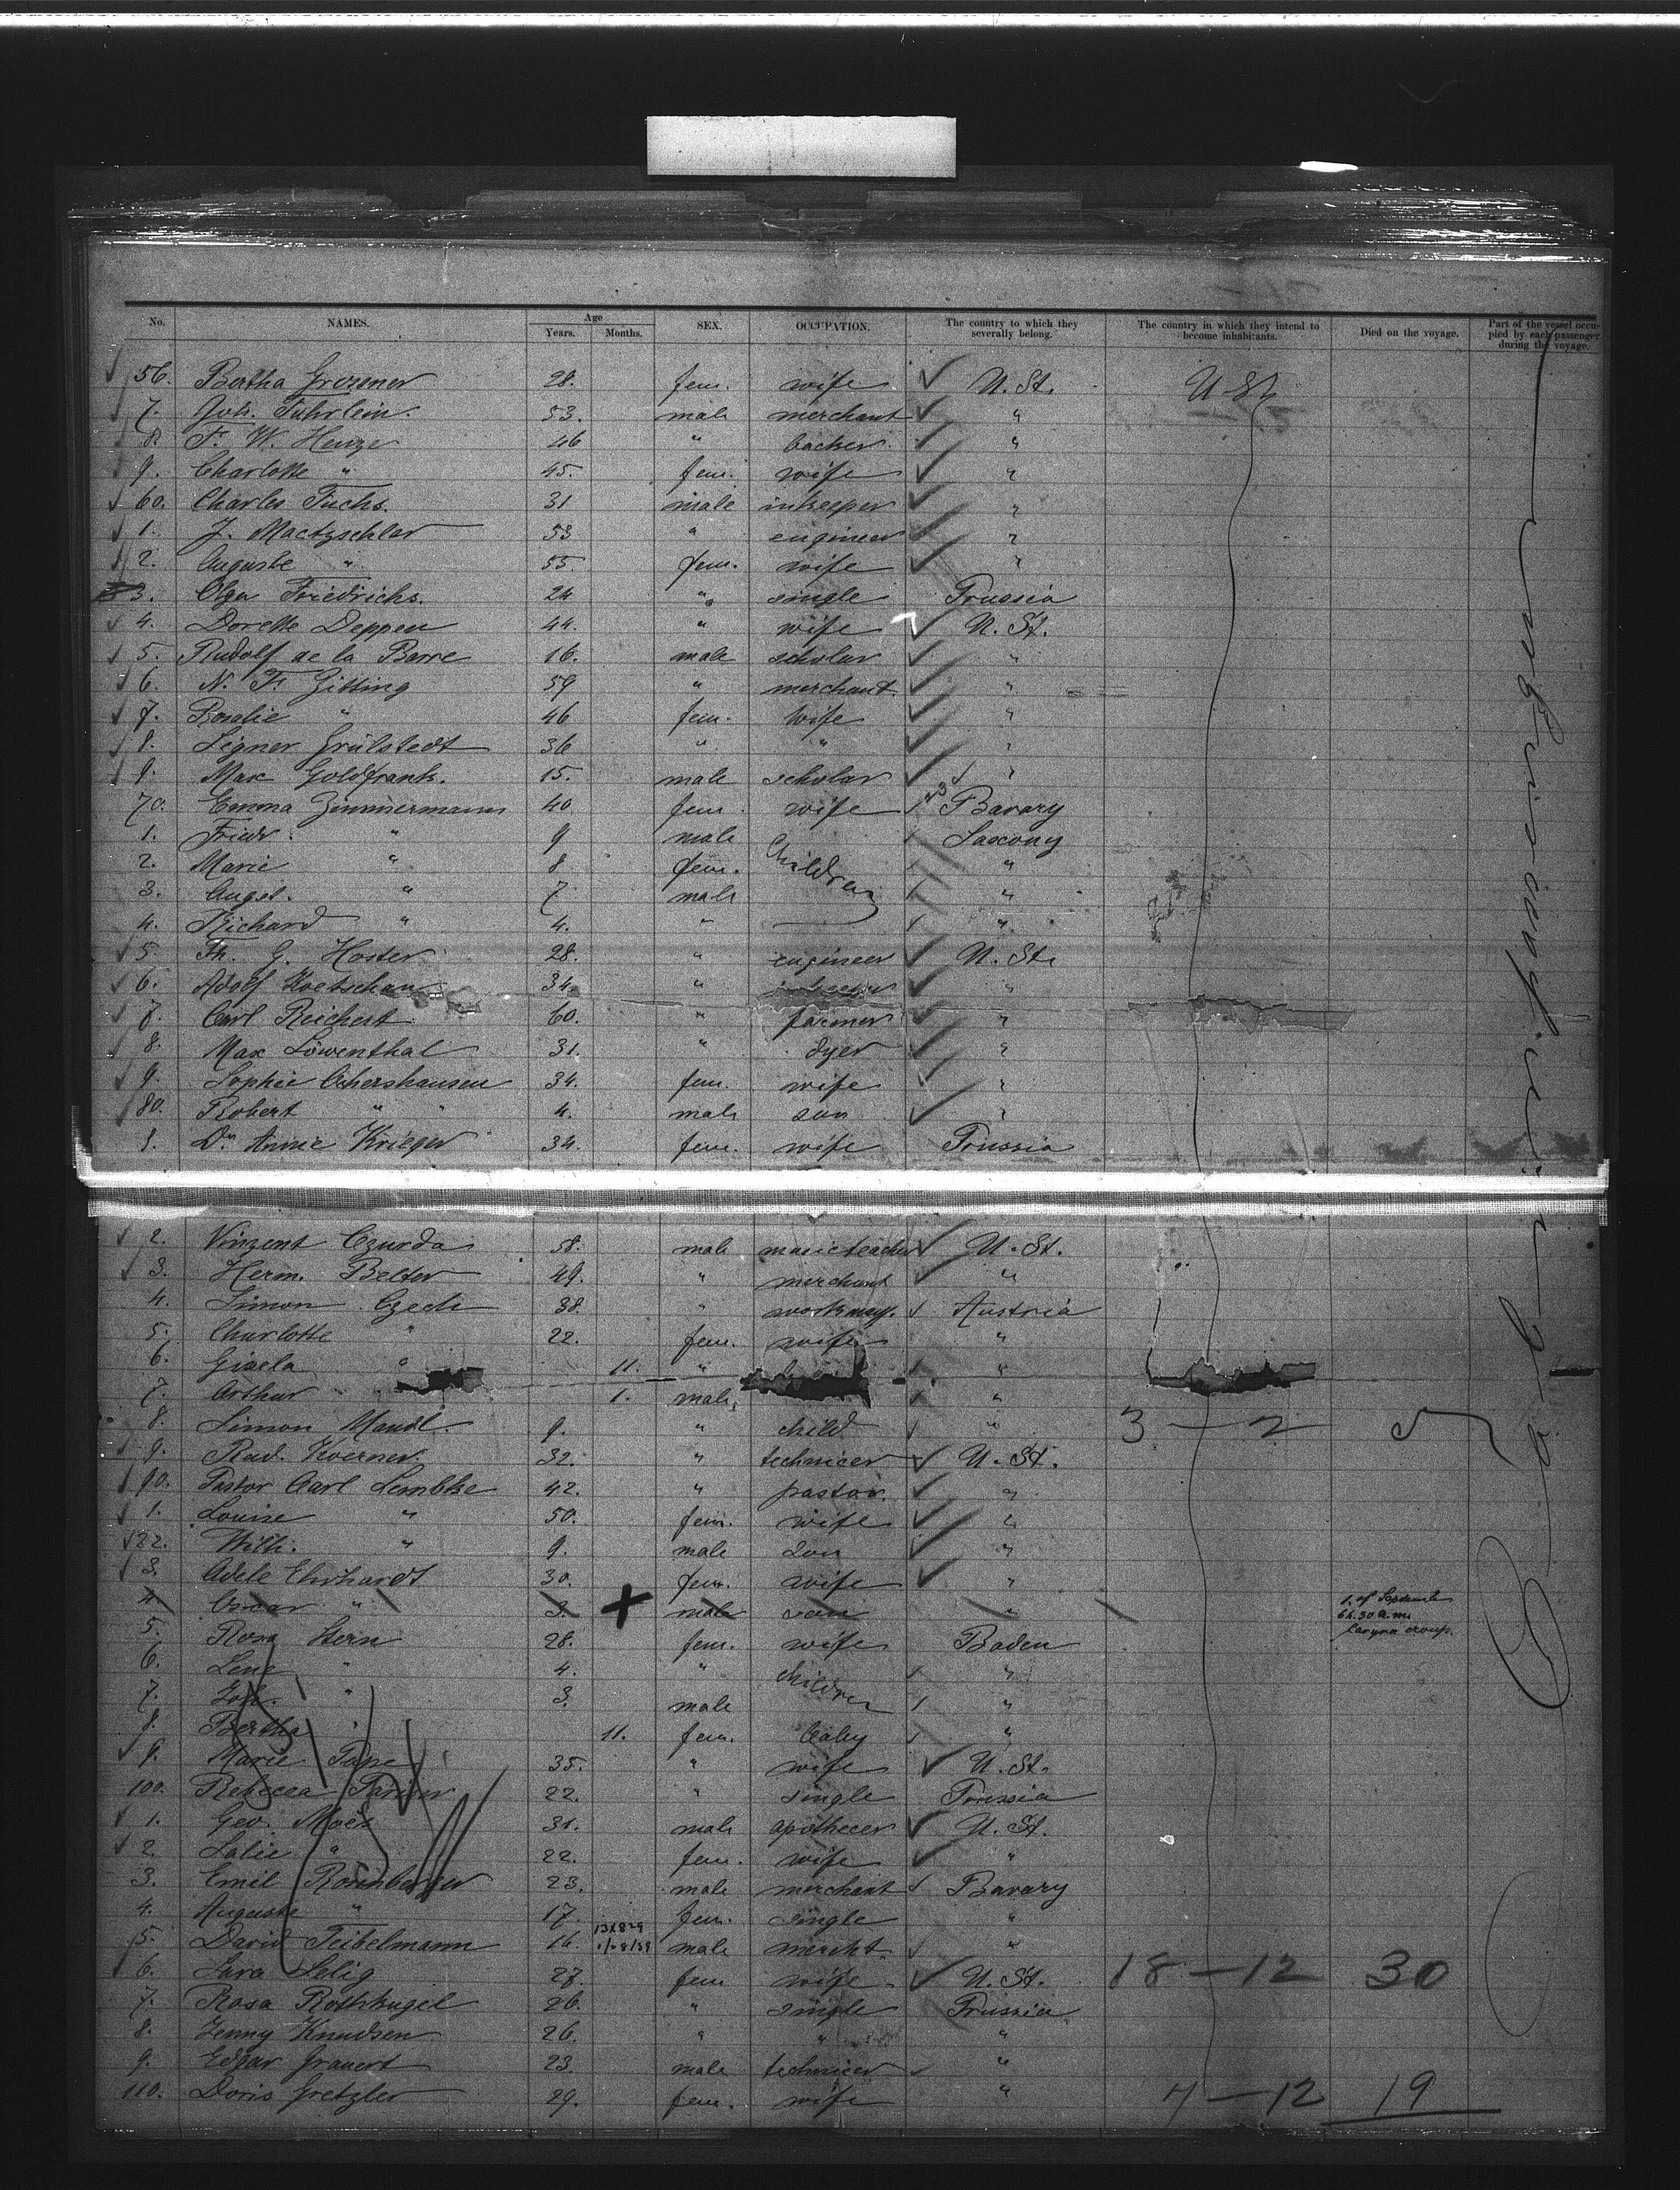 No. NAMES. Age Years. Months. SEX. OCCUPATION. The country to which they severally belong. The country in which they intend to become inhabitants. Died on the voyage. Part of the vessel occupied by each passenger during the voyage.
56. Bertha Grozener 28. fem. wife U. St. U. St.
7. Joh. Fuhrlein. 53. male merchant "
8 F. W. Henze 46 " backer "
9. Charlotte " 45. fem. wife "
60. Charles Fuchs. 31 male inkeeper "
1. J. Mactzschlar 53 " engineer "
2. Auguste " 55. fem. wife "
3. Olga Friedrichs. 24 " single Prussia
4. Dorette Deppen 44. " wife U. St.
5. Rudolf de la Barre 16. male scholar "
6. N. F. Gitting 59 " merchant. "
7. Rosalie " 46 fem. wife "
8. Signer Grülstedt 36 " " "
9. Max Goldfrank. 15. male scholar "
70. Emma Zimmermann 40 fem. wife Bavary
1. Friedr. " 9 male Children Saxony
2. Marie " 8 fem. "
3. August. " 7 male "
4. Richard " 4. " "
5. Th. G. Hoster 28. " engineer U. St.
6. Adolf Koetschau 34. " "
7. Carl Reichert 60. " farmer "
8. Max Löwenthal 31. " dyer "
9. Sophie Ahershausen 34. fem. wife "
80. Robert " " 4. male son "
1. Dr. Annie Krieger 34. fem. wife Prussia
2. Vinzent Czurda 58. male musicteacher U. St.
3. Herm. Belter 49. " merchant "
4. Simon Czech 38. " workmay. Austria
5. Charlotte " 22. fem. wife "
6. Gisela " 11. " "
7. Arthur " 1. male "
8. Simon Mandl. 9. " child " 3 - 2 5
9. Rud. Koerner. 32. " technicer U. St.
90. Pastor Carl Lembke 42. " pastor. "
1. Louise " 50. fem. wife "
22. Wilh. " 9. male son "
3. Adele Ehrhardt 30. fem. wife "
4. Oscar " 3. male son " 1. of September 6h. 30 a.m. Larynx croup.
5. Rosa Stern 28. fem. wife Baden
6. Lene " 4. " children "
7. " 3. male "
8. Bertha " 11. fem. baby "
9. Marie Pape 35. " wife U. St.
100. Rebecca 22. " single Prussia
1. Geo. Moës 31. male apothecer U. St.
2. Lalie " 22. fem. wife "
3. Emil Rosenberger 23. male merchant Bavary
4. Auguste " 17. fem. single "
5. David Teitelmann 16. male mercht. "
6. Sara Selig 27. fem wife U. St. 18 - 12 30
7. Rosa Rothkugel 26. " single Prussia
8. Jenny Knudsen 26. " " "
9. Edgar Grauert 23. male technicer "
110. Doris Gretzler 29. fem. wife " 7 - 12 19